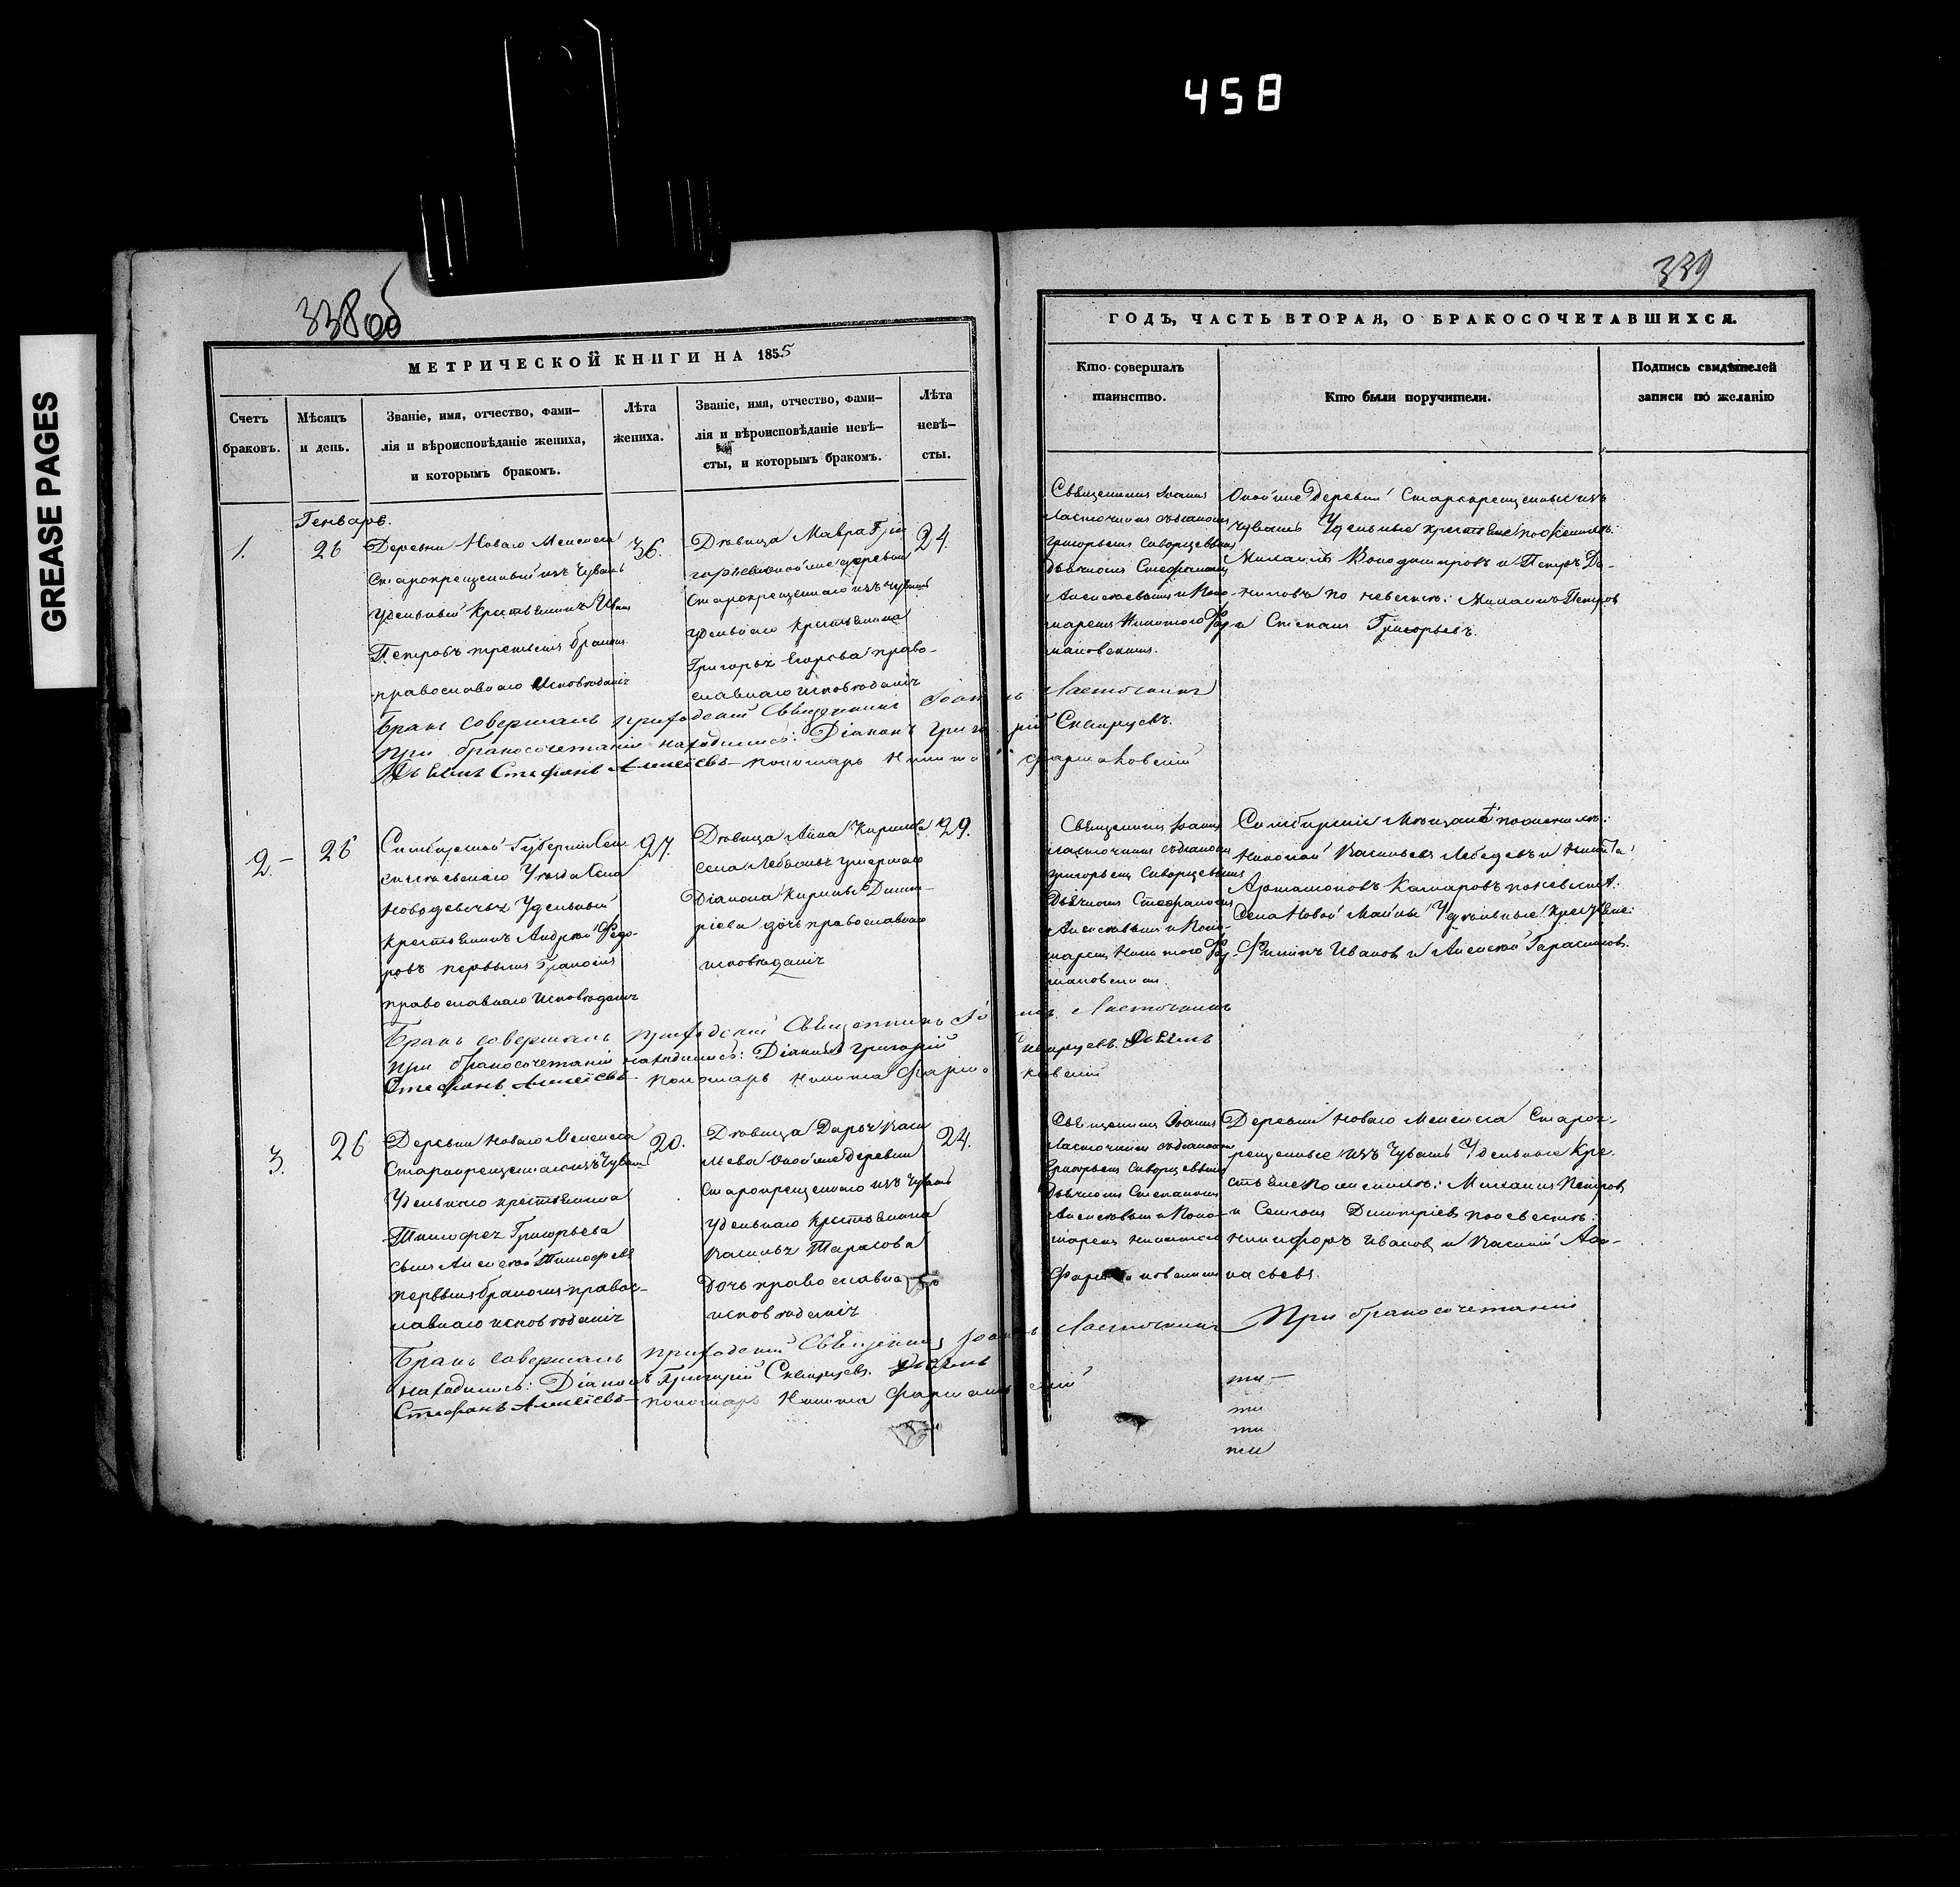 458
GREASE PAGES
338 об
339
МЕТРИЧЕСКОЙ КНИГИ НА 1855
ГОДЪ, ЧАСТЬ ВТОРАЯ, О БРАКОСОЧЕТАВШИХСЯ.
Счетъ
браковъ.
Мѣсяцъ
и день.
Званіе, имя, отчество, фами-
лія и вѣроисповѣданіе жениха,
и которымъ бракомъ.
Лѣта
жениха.
Званіе, имя, отчество, фами-
лія и вѣроисповѣданіе невѣ-
сты, и которымъ бракомъ.
Лѣта
невѣ-
сты.
Кто совершалъ
таинство.
Кто были поручители.
Подпись свидѣтелей
записи по желанію
Генварь.
1.
26
Деревни Новаго
Старокрещеный изъ Чувашъ
Удельный Крестьянинъ Иванъ
Петровъ третьимъ бракомъ
православнаго Исповѣданія
36.
Дѣвица Мавра Гри
горьева оной же деревни
Старокрещенаго изъ чувашъ
удельнаго крестьянина
Григорья Егорова право-
славнаго исповѣданія
24.
Священникъ Іоаннъ
Ласточкинъ съ діакономъ
Григорьемъ Скворцевымъ
Дьячкомъ Стефаномъ
Алексѣевымъ и Поно-
маремъ Никитою Фар-
маковскимъ.
Оной же Деревни Старокрещеные изъ
чувашъ Удельные крестьяне по женихѣ:
Михаилъ Володимировъ и Петръ Да-
ниловъ по невѣстѣ: Михаилъ Петров
и Степанъ Григорьевъ.
Бракъ совершалъ приходскій Священникъ Іоаннъ Ласточкинъ
При бракосочетаніи находились: Діаконъ Григорій Скворцевъ.
Дьячекъ Стефанъ Алексѣевъ пономарь Никита Фармаковскій
2-
26
Симбирской Губерніи Сен
гилеевскаго Уѣзда Села
Новодевичья Удельный
крестьянинъ Андрей Федо-
ровъ первымъ бракомъ
православнаго Исповѣданія
27.
Дѣвица Анна Кирилова
Села умершаго
Діакона Кирилы Дмит-
ріева дочь православнаго
исповѣданія
29.
Священникъ Іоаннъ
Ласточкинъ съ діакономъ
Григорьемъ Скворцевымъ
Дьячкомъ Стефаномъ
Алексѣевымъ и Поно-
маремъ Никитою Фар-
маковскимъ.
Симбирскіе Мѣщане по женихѣ:
Николай Васильевъ Лебедевъ и Никита
Артамоновъ Камаровъ по невѣстѣ:
Села Новой Майны Удѣльные Крестьяне:
Филипъ Иванов и Алексѣй Гарасимов.
Бракъ совершалъ приходскій Священникъ Іоаннъ Ласточкинъ
При бракосочетаніи находились: Діаконъ Григорій Скворцевъ. Дьячекъ
Стефанъ Алексѣевъ пономарь Никита Фармаковскій
3.
26
Деревни Новаго
Старокрещенаго изъ Чувашъ
Удельнаго крестьянина
Тимофея Григорьева
сынъ Алексѣй Тимофеевъ
первымъ бракомъ правос-
лавнаго исповѣданія
20.
Дѣвица Дарья Васи
льева оной же деревни
Старокрещенаго изъ Чувашъ
удельнаго Крестьянина
Василья Тарасова
дочь православнаго
исповѣданія
24.
Священникъ Іоаннъ
Ласточкинъ съ діакономъ
Григорьемъ Скворцевымъ
Дьячкомъ Степаномъ
Алексѣевымъ и Поно-
маремъ Никитою
Фармаковскимъ
Деревни Новаго Старок-
рещеные изъ Чувашъ Удельные Кре-
стьяне по женихѣ: Михаилъ Петров
и Семенъ Дмитріев по невѣстѣ:
Никифоръ Иванов и Василій Афа-
насьевъ.
Бракъ совершалъ приходскій Священникъ Іоаннъ Ласточкинъ При бракосочетаніи
находились: Діаконъ Григорій Скворцевъ. Дьячекъ
Стефанъ Алексѣевъ пономарь Никита Фармаковскій